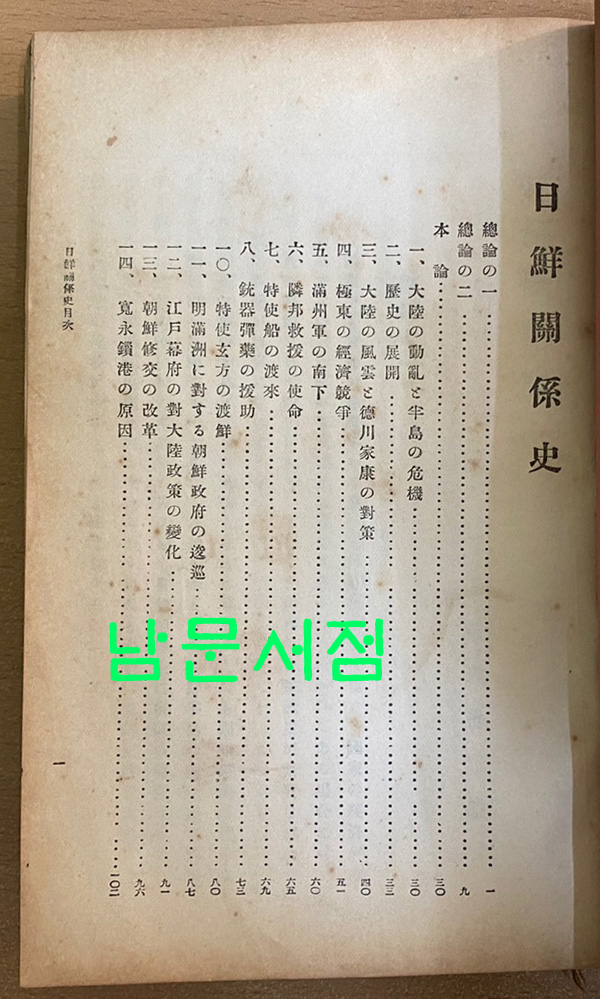 日鮮關係史
總論の一 一
總論の二 九
本論 三〇
一、大陸の動亂と半島の危機 三〇
二、歴史の展開 三三
三、大陸の風雲と德川家康の對策 四〇
四、極東の經濟競爭 五一
五、滿州軍の南下 六〇
六、隣邦救援の使命 六五
七、特使船の渡來 六九
八、銃器彈藥の援助 七三
一〇、特使玄方の渡鮮 八〇
一一、明滿洲に對する朝鮮政府の逡巡 八七
一二、江戸幕府の對大陸政策の變化 九一
一三、朝鮮修交の改革 九六
一四、寬永鎖港の原因 一〇二
日鮮關係史目次
一
남문서점